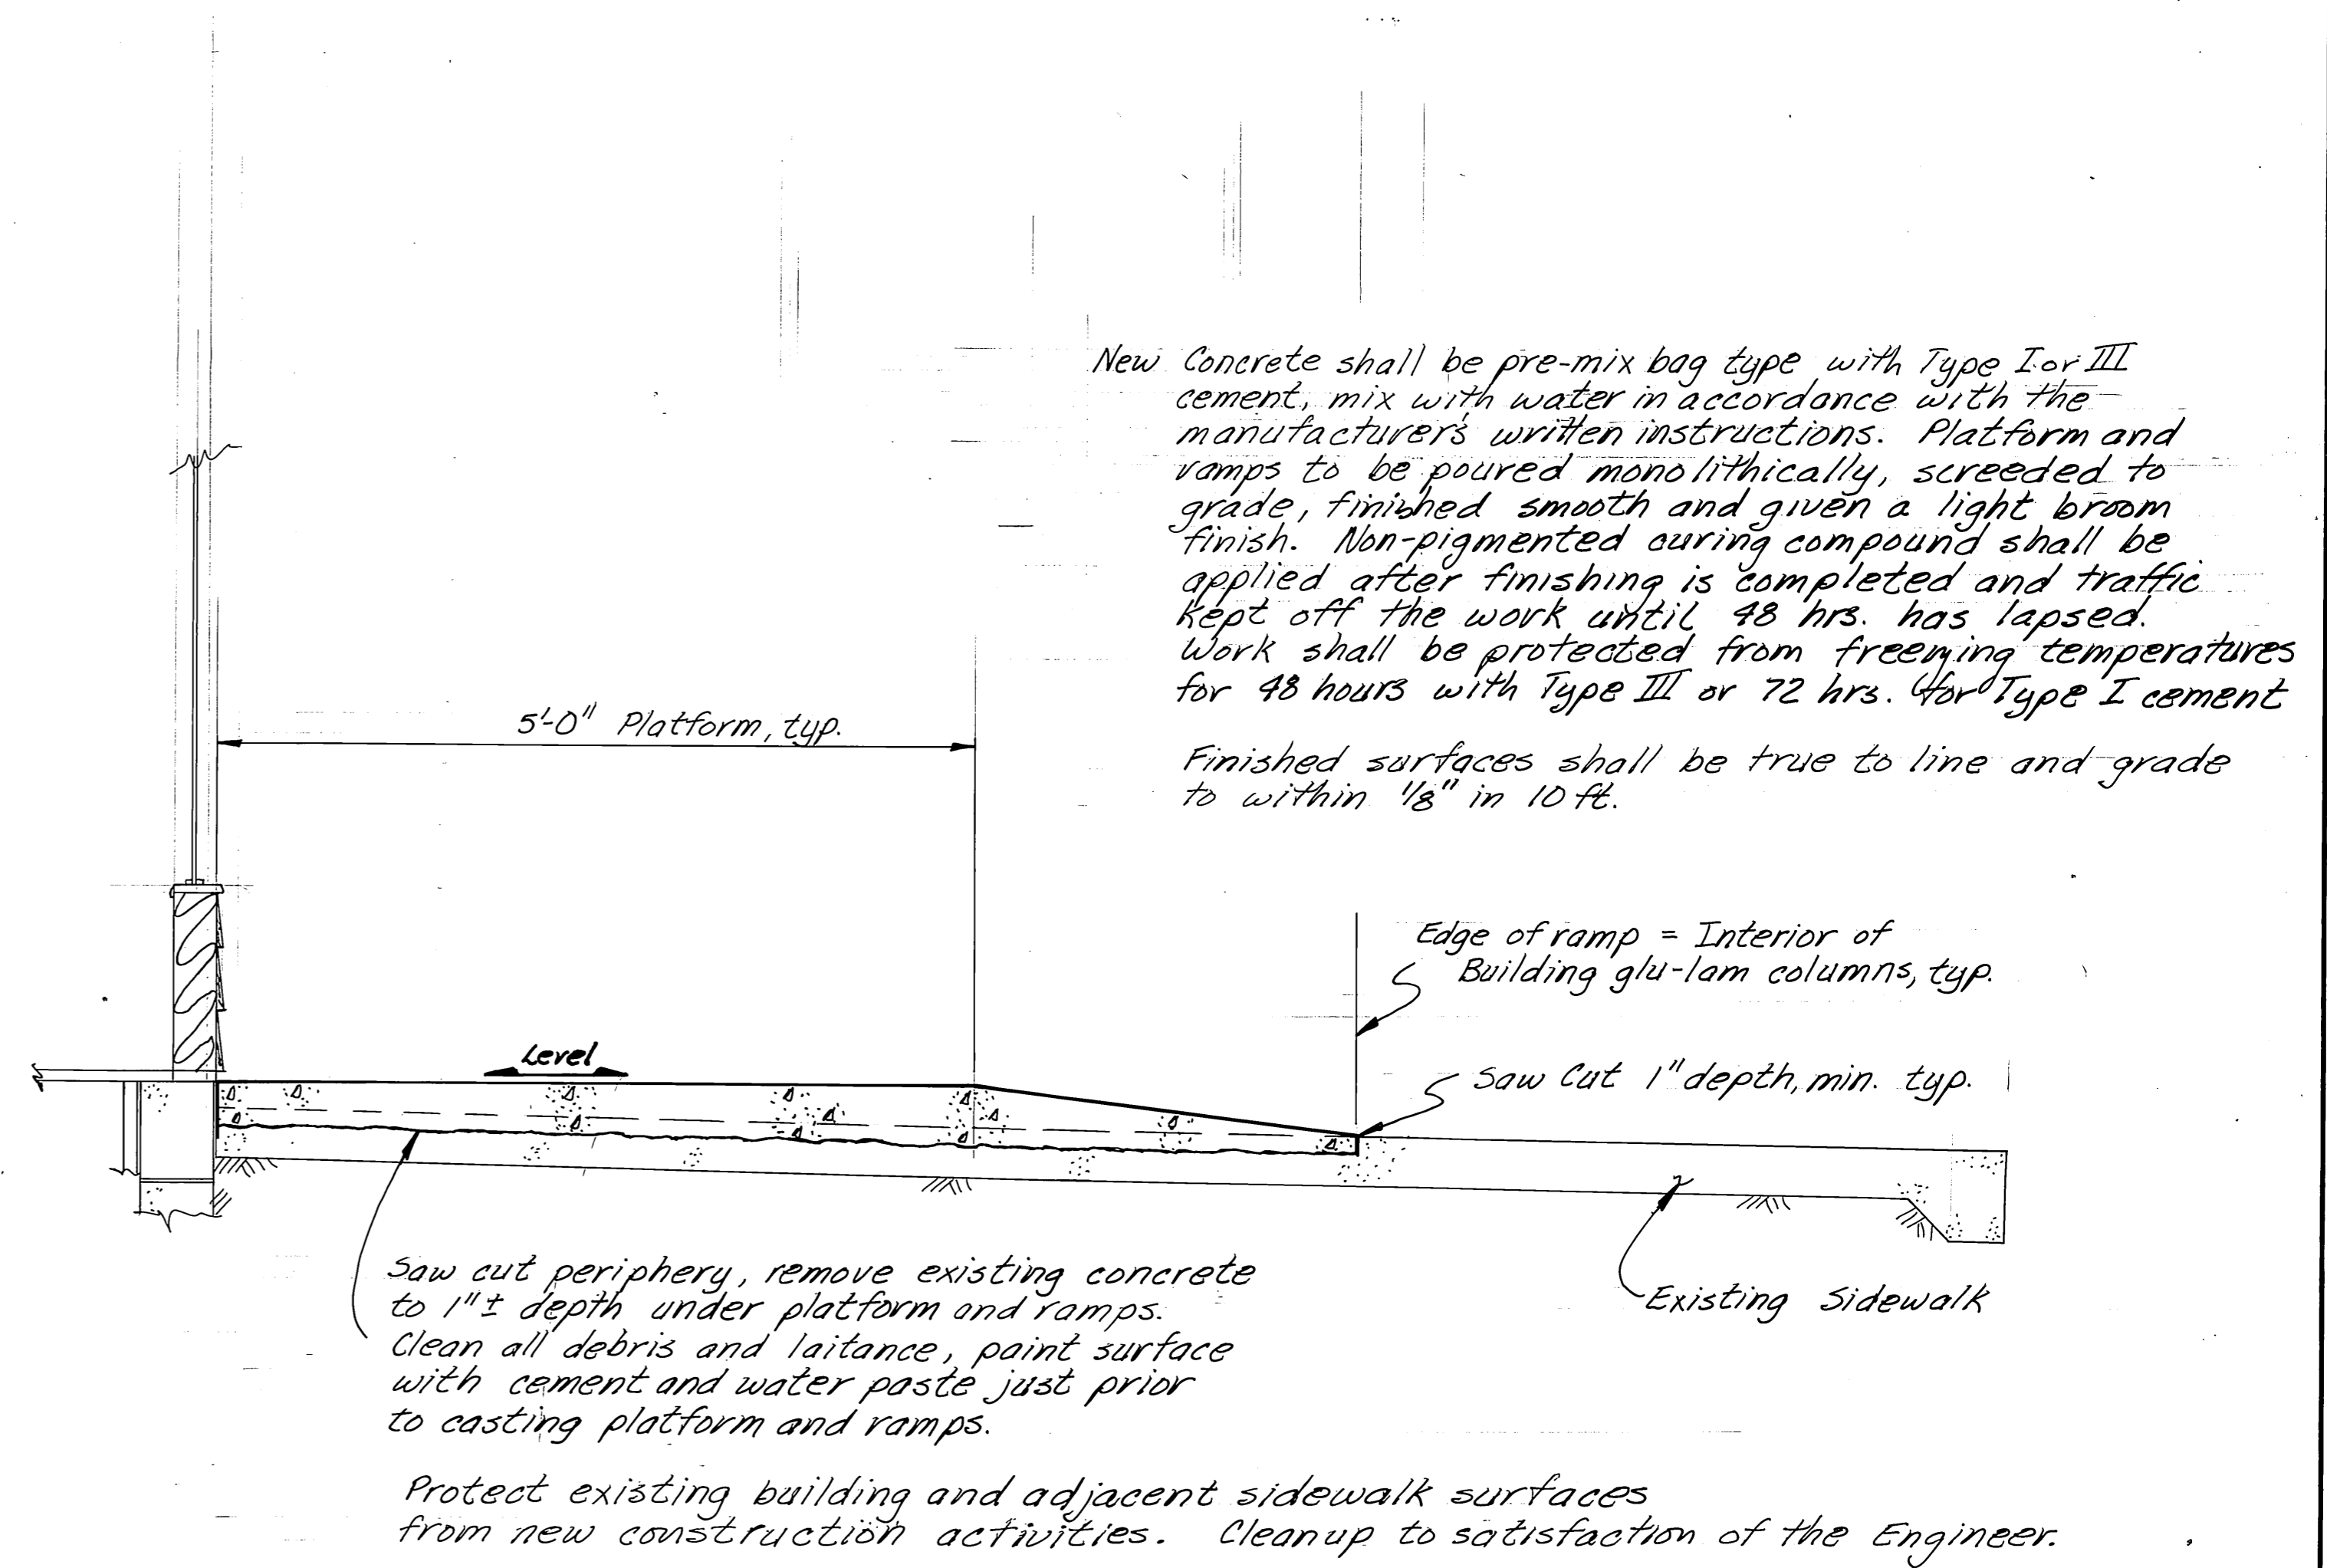 New Concrete shall be pre-mix bag type with Type I or III
cement, mix with water in accordance with the
manufacturer's written instructions. Platform and
ramps to be poured monolithically, screeded to
grade, finished smooth and given a light broom
finish. Non-pigmented curing compound shall be
applied after finishing is completed and traffic
kept off the work until 48 hrs. has lapsed.
Work shall be protected from freezing temperatures
for 48 hours with Type III or 72 hrs. for Type I cement
5'-0" Platform, typ.
Finished surfaces shall be true to line and grade
to within 1/8" in 10 ft.
Edge of ramp = Interior of
Building glu-lam columns, typ.
Level
Saw Cut 1" depth, min. typ.
Saw cut periphery, remove existing concrete
to 1" ± depth under platform and ramps.
Clean all debris and laitance, paint surface
with cement and water paste just prior
to casting platform and ramps.
Existing Sidewalk
Protect existing building and adjacent sidewalk surfaces
from new construction activities. Cleanup to satisfaction of the Engineer.